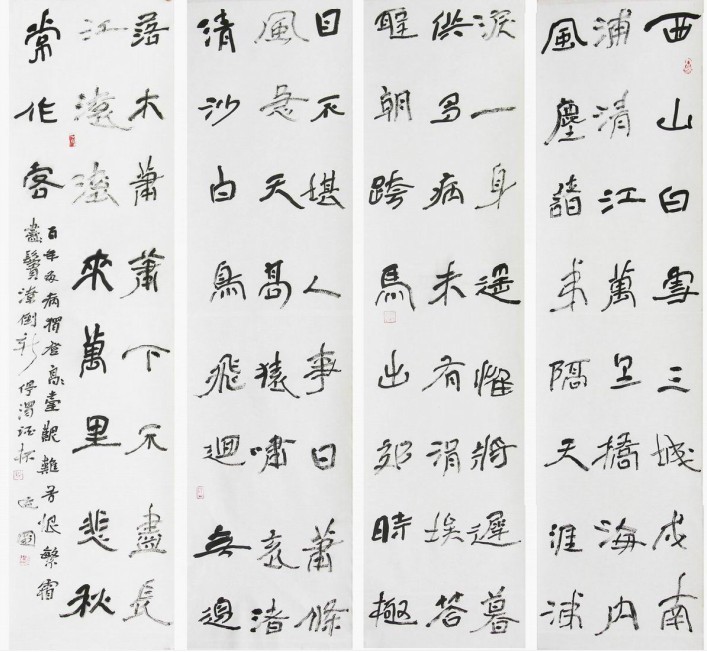 西山白雪三城戍南
浦清江萬里橋海內
風塵諸弟隔天涯涕
淚一身遥惟將遲暮
供多病未有涓埃答
聖朝跨馬出郊時極
目不堪人事日蕭條
風急天高猿嘯哀渚
清沙白鳥飛迴無邊
落木蕭蕭下不盡長
江滾滾來萬里悲秋
常作客
百年多病獨登高臺艱難苦恨繁霜
鬢潦倒新停濁酒杯